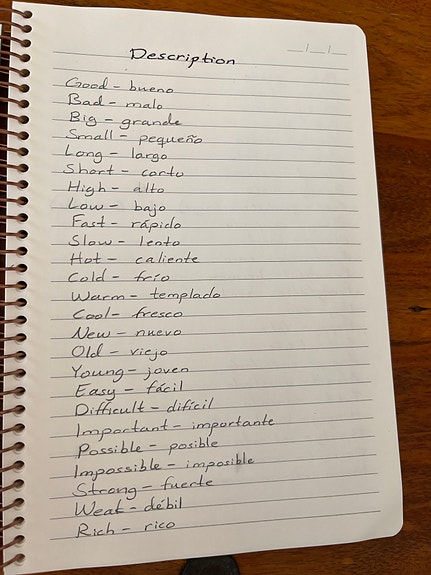 Description
__/__/__
Good - bueno
Bad - malo
Big - grande
Small - pequeño
Long - largo
Short - corto
High - alto
Low - bajo
Fast - rápido
Slow - lento
Hot - caliente
Cold - frío
Warm - templado
Cool - fresco
New - nuevo
Old - viejo
Young - joven
Easy - fácil
Difficult - difícil
Important - importante
Possible - posible
Impossible - imposible
Strong - fuerte
Weak - débil
Rich - rico